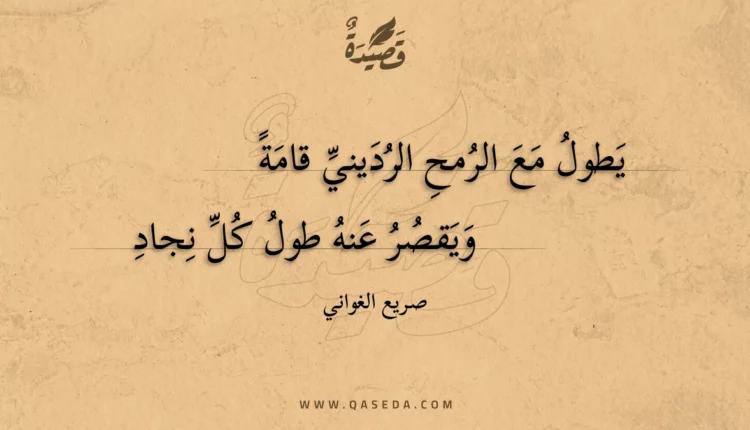 قَصِيْدَةٌ
يَطولُ مَعَ الرُمحِ الرُدَينيِّ قامَةً
وَيَقصُرُ عَنهُ طولُ كُلِّ نِجادِ
صريع الغواني
WWW.QASEDA.COM